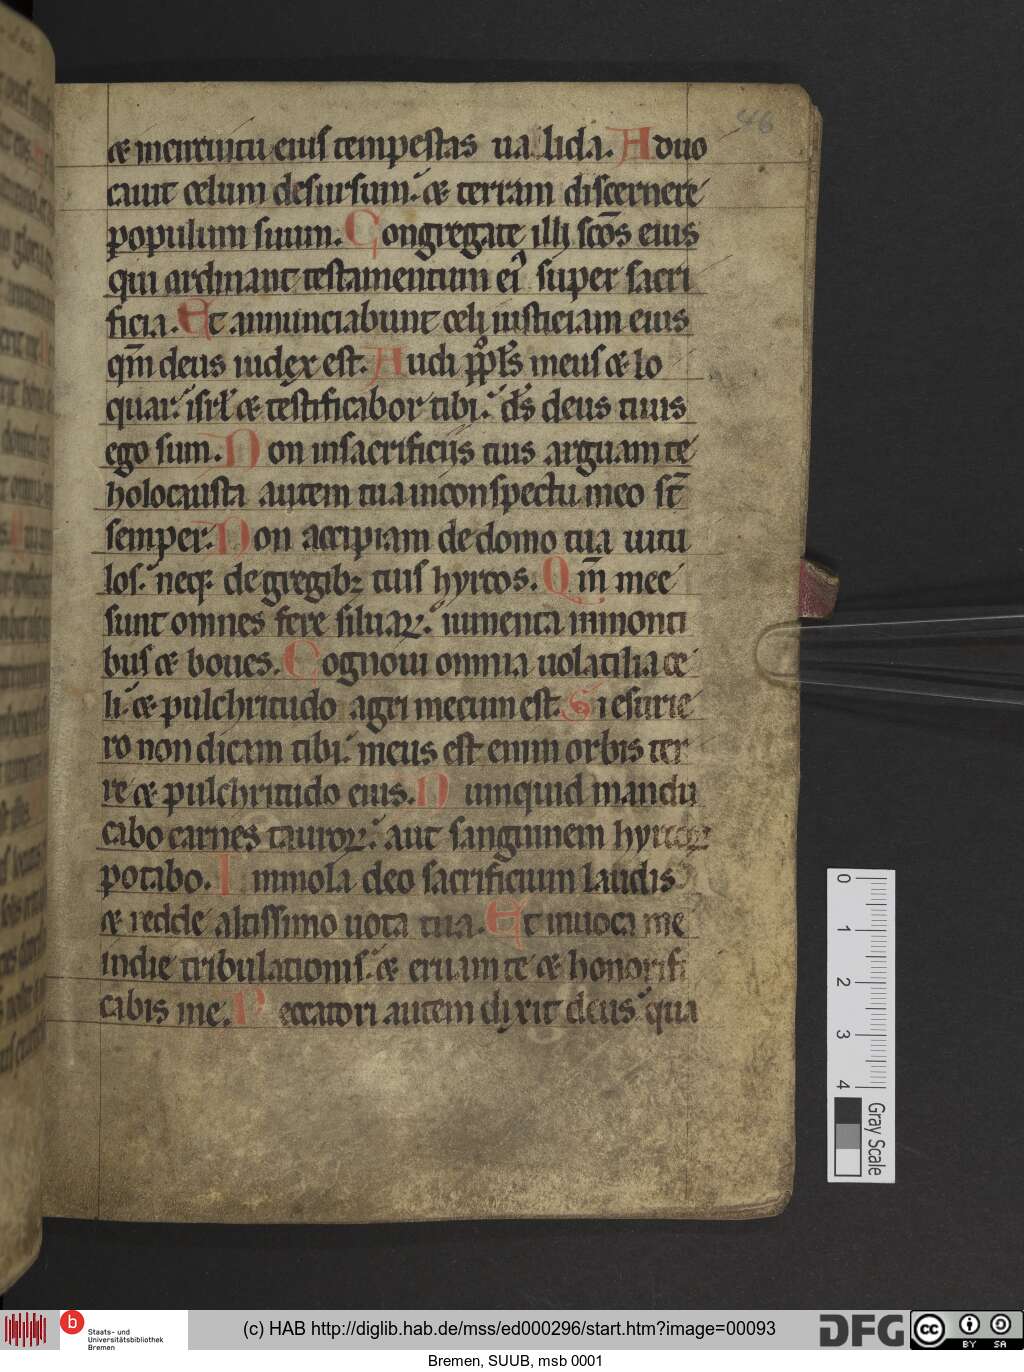 46
& incircuitu eius tempestas ualida. Aduo
cauit celum desursum. & terram discernere
populum suum. Congregate illi scōs eius
qui ordinant testamentum ei' super sacri
ficia. Et annunciabunt celi iusticiam eius
qm̄ deus iudex est. Audi ppls meus & lo
quar. isrl & testificabor tibi. ds deus tuus
ego sum. Non insacrificiis tuis arguam te
holocausta autem tua inconspectu meo st̄
semper. Non accipiam de domo tua uitu
los. neq; de gregibꝫ tuis hyrcos. Qm̄ mee
sunt omnes fere siluaꝝ. iumenta inmonti
bus & boues. Cognoui omnia uolatilia ce
li. & pulchritudo agri mecum est. Si esurie
ro non dicam tibi. meus est enim orbis ter
re & pulchritudo eius. Numquid mandu
cabo carnes tauroꝝ. aut sanguinem hyrcoꝝ
potabo. Immola deo sacrificium laudis
& redde altissimo uota tua. Et inuoca me
indie tribulationis. & eruam te & honorifi
cabis me. Peccatori autem dixit deus. qua
0 1 2 3 4
Gray Scale
b
Staats- und
Universitätsbibliothek
Bremen
(c) HAB http://diglib.hab.de/mss/ed000296/start.htm?image=00093
DFG
cc BY SA
Bremen, SUUB, msb 0001